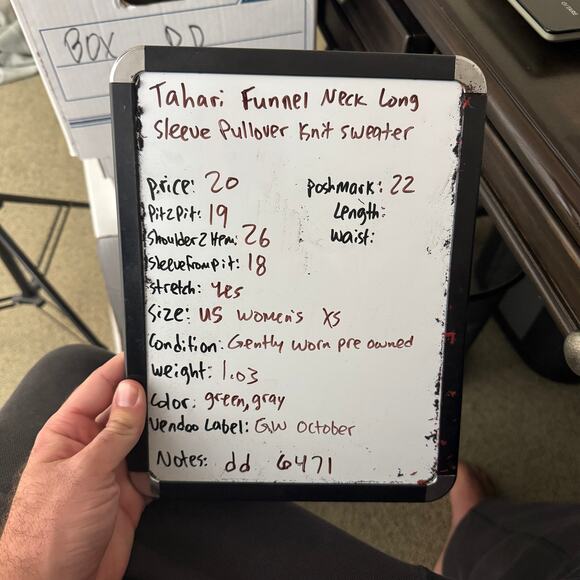 BOX
Tahari Funnel Neck Long
Sleeve Pullover Knit sweater
price: 20
poshmark: 22
Pit2Pit: 19
Length:
Shoulder2Hem: 26
Waist:
Sleevefrompit: 18
stretch: yes
Size: US women's XS
Condition: Gently worn pre owned
weight: 1.03
Color: green, gray
Vendoo Label: GW October
Notes: dd 6471